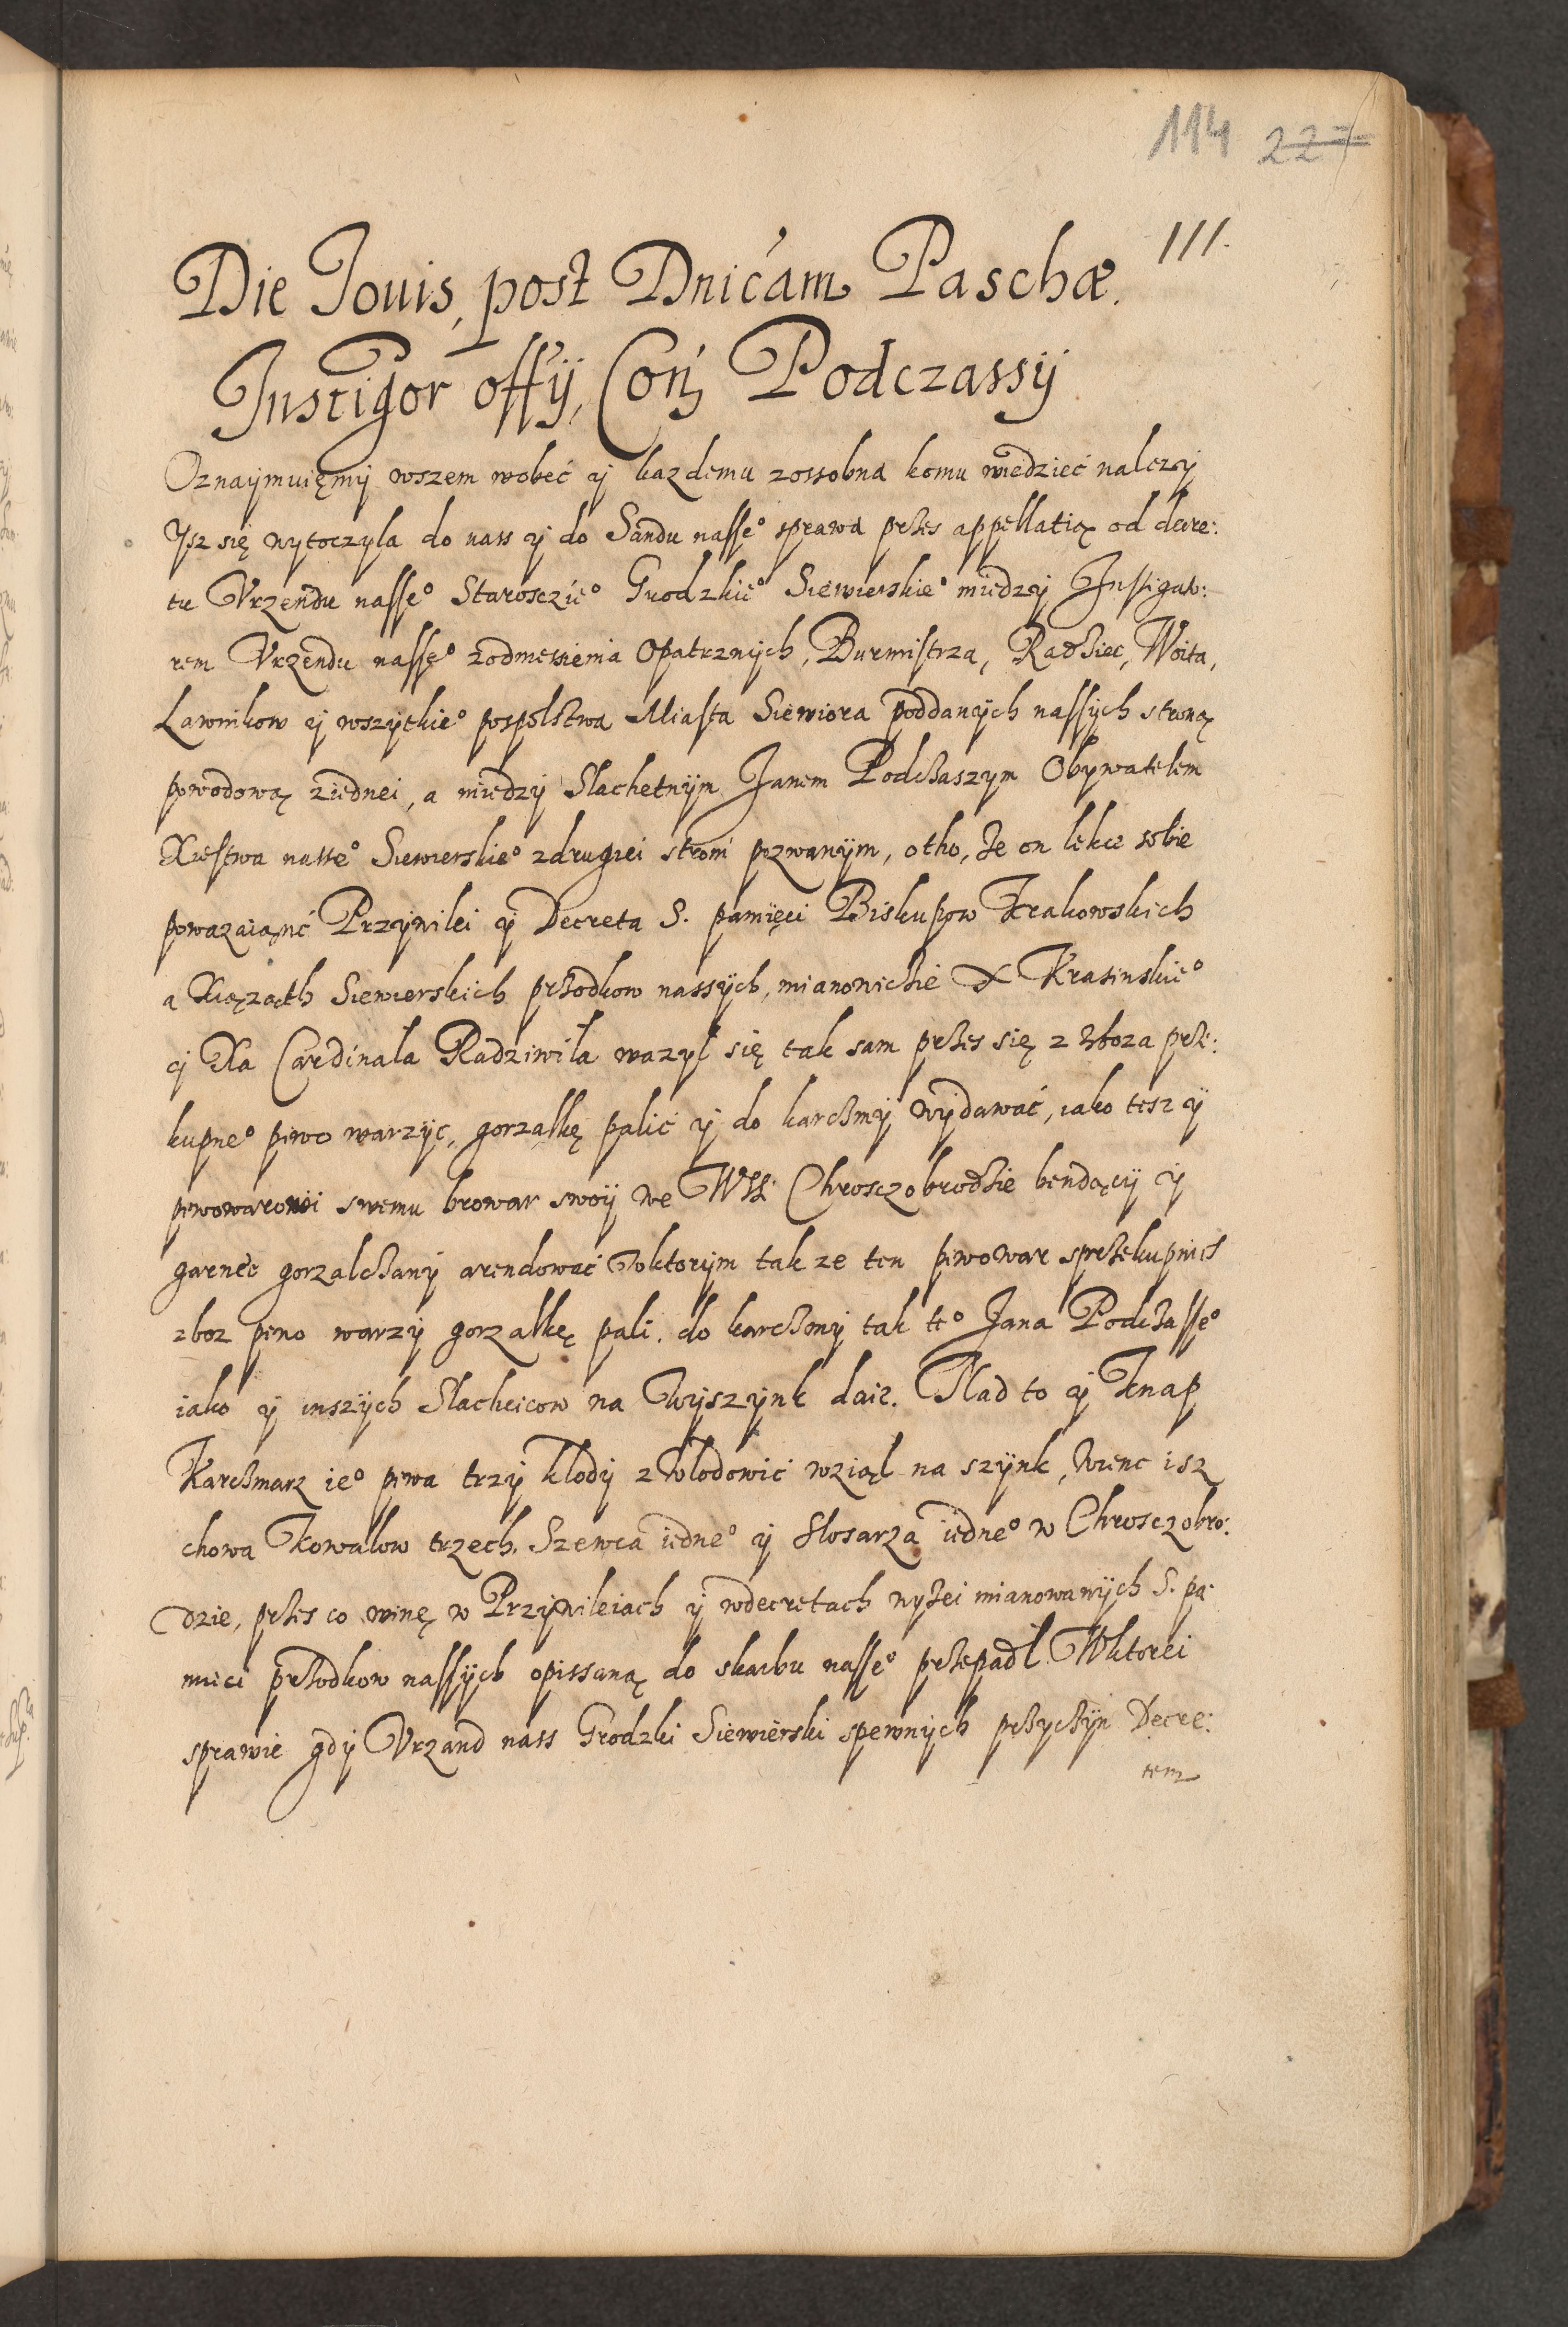 114 227
111.
Die Jouis, post Dnicam Paschæ.
Instigor offÿ, Con Podczassÿ
Oznaÿmuięmÿ wszem wobeć ÿ kazdemu zossobna komu wiedzieć nalezÿ
Ysz się wÿtoczÿla do nass ÿ do Sandu nasse° sprawa przes appellatią od decre:
tu Vrzendu nasse° Starosczie° Grodzkie° Siewierskie° miedzÿ Instigato:
rem Vrzendu nasse° zodniessienia Opatrznÿch, Burmistrza, Radziec, Woita,
Lawnikow ÿ wszÿtkie° pospolstwa Miasta Siewiora poddanÿch nassÿch stroną
powodową ziednei, a miedzÿ Slachetnÿm Janem Podczaszym Obÿwatelem
Xiestwa nasse° Siewierskie° zdrugiei stroni pozwanÿm, otho, ze on lekce sobie
powazaiąnć Przÿwilei ÿ Decreta S. pamięci Biskupow Krakowskich
a Xiąząth Siewierskich przodkow nassÿch, mianowiczie X Krasinskie°
ÿ Xa Cardinala Radziwila wazÿl się tak sam przes się z zboza prze:
kupne° piwo warzÿc, gorzalkę palić ÿ do karczmÿ wÿdawać, iako tesz ÿ
piwowarowi swemu browar swoÿ we WSi Chrosczobrodzie bendąciÿ ÿ
garnec gorzalczanÿ arendować wktorÿm tak ze ten piwowar sprzekupnich
zboz piwo warzÿ gorzalkę pali. do karczmÿ tak te° Jana Podczasse°
iako ÿ inszÿch Slachcicow na Wÿszÿnk daie. Nad to ÿ Knap
Karczmarz ie° piwa trzÿ klodÿ zWlodowic wziąl na szÿnk, Wienc isz
chowa Kowalow trzech. Szewca iedne° ÿ slosarza iedne° w Chrosczobro:
dzie, przes co winę w Przÿwileiach ÿ wdecretach wÿzei mianowanÿch S. pa:
mieci przodkow nassÿch opissaną do skarbu nasse° przepadl. Wktorei
sprawie gdÿ Vrzand nass Grodzki Siewierski spewnÿch przÿczÿn Decre:
tem